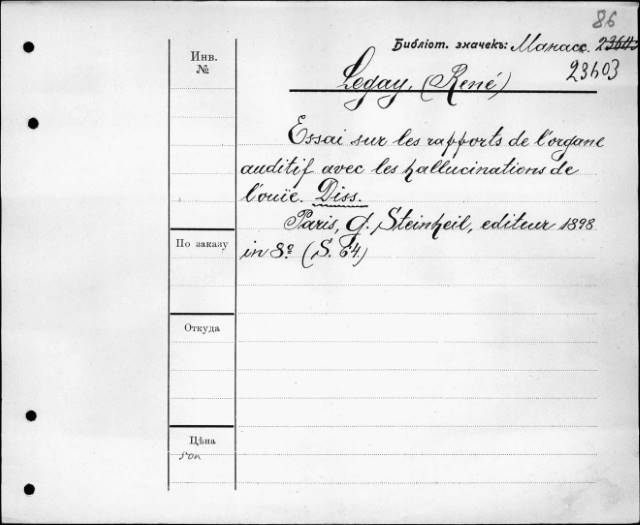 86
Библіот. значекъ: Манасс. 23603
23603
Инв.
№
Legay, (René)
Essai sur les rapports de l'organe
auditif avec les hallucinations de
l'ouïe. Diss.
Paris, G. Steinheil, editeur 1898
По заказу
in 8º (S. 64)
Откуда
Цѣна